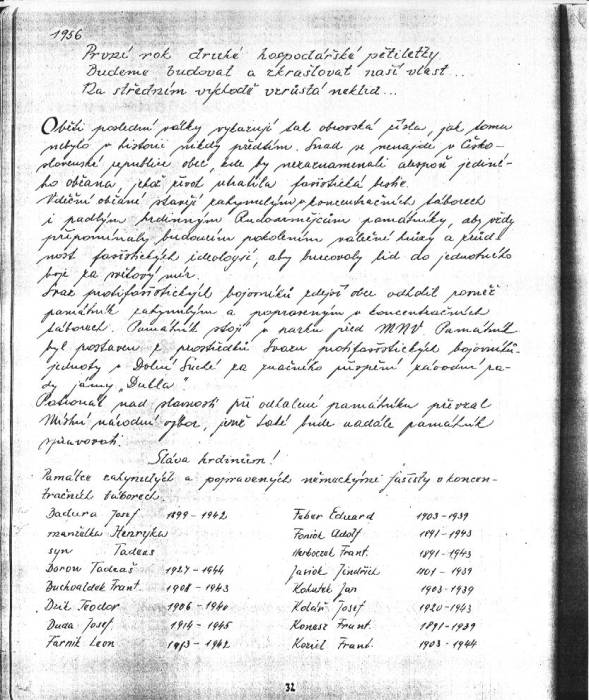 1956
První rok druhé hospodářské pětiletky
Budeme budovat a zkrašlovat naši vlast...
Na středním východě vzrůstá neklid...
Oběti poslední války vykazují tak obrovská čísla, jak tomu
nebylo v historii nikdy předtím. Snad se nenajde v Česko-
slovenské republice obec, kde by nezaznamenali alespoň jediné-
ho občana, jehož život uhasila fašistická bestie.
Vděční občané stavějí zahynulým v koncentračních táborech
i padlým hrdinným Rudoarmějcům památníky, aby vždy
připomínaly budoucím pokolením válečné hrůzy a zrůd-
nost fašistických ideologií, aby burcovaly lid do jednotného
boje za světový mír.
Svaz protifašistických bojovníků zdejší obce odhalil rovněž
památník zahynulým a popraveným v koncentračních
táborech. Památník stojí v parku před MNV. Památník
byl postaven z prostředků Svazu protifašistických bojovníků-
jednoty v Dolní Suché za značného přispění závodní ra-
dy jámy „Dukla".
Patronát nad slavností při odhalení památníku převzal
Místní národní výbor, jenž také bude nadále památník
spravovati.
Sláva hrdinům!
Památce zahynulých a popravených německými fašisty v koncen-
tračních táborech.
Badura Josef 1899-1942 Feber Eduard 1903-1939
manželka Henryka Foniok Adolf 1891-1943
syn Tadeáš Herboczek Frant. 1891-1943
Boron Tadeáš 1927-1944 Javiok Jindřich 1901-1939
Buchvaldek Frant. 1908-1943 Kohutek Jan 1903-1939
Dzit Teodor 1906-1940 Kolář Josef 1920-1943
Duda Josef 1914-1945 Konesz Frant. 1891-1939
Farnik Leon 1913-1942 Koziel Frant. 1903-1944
32